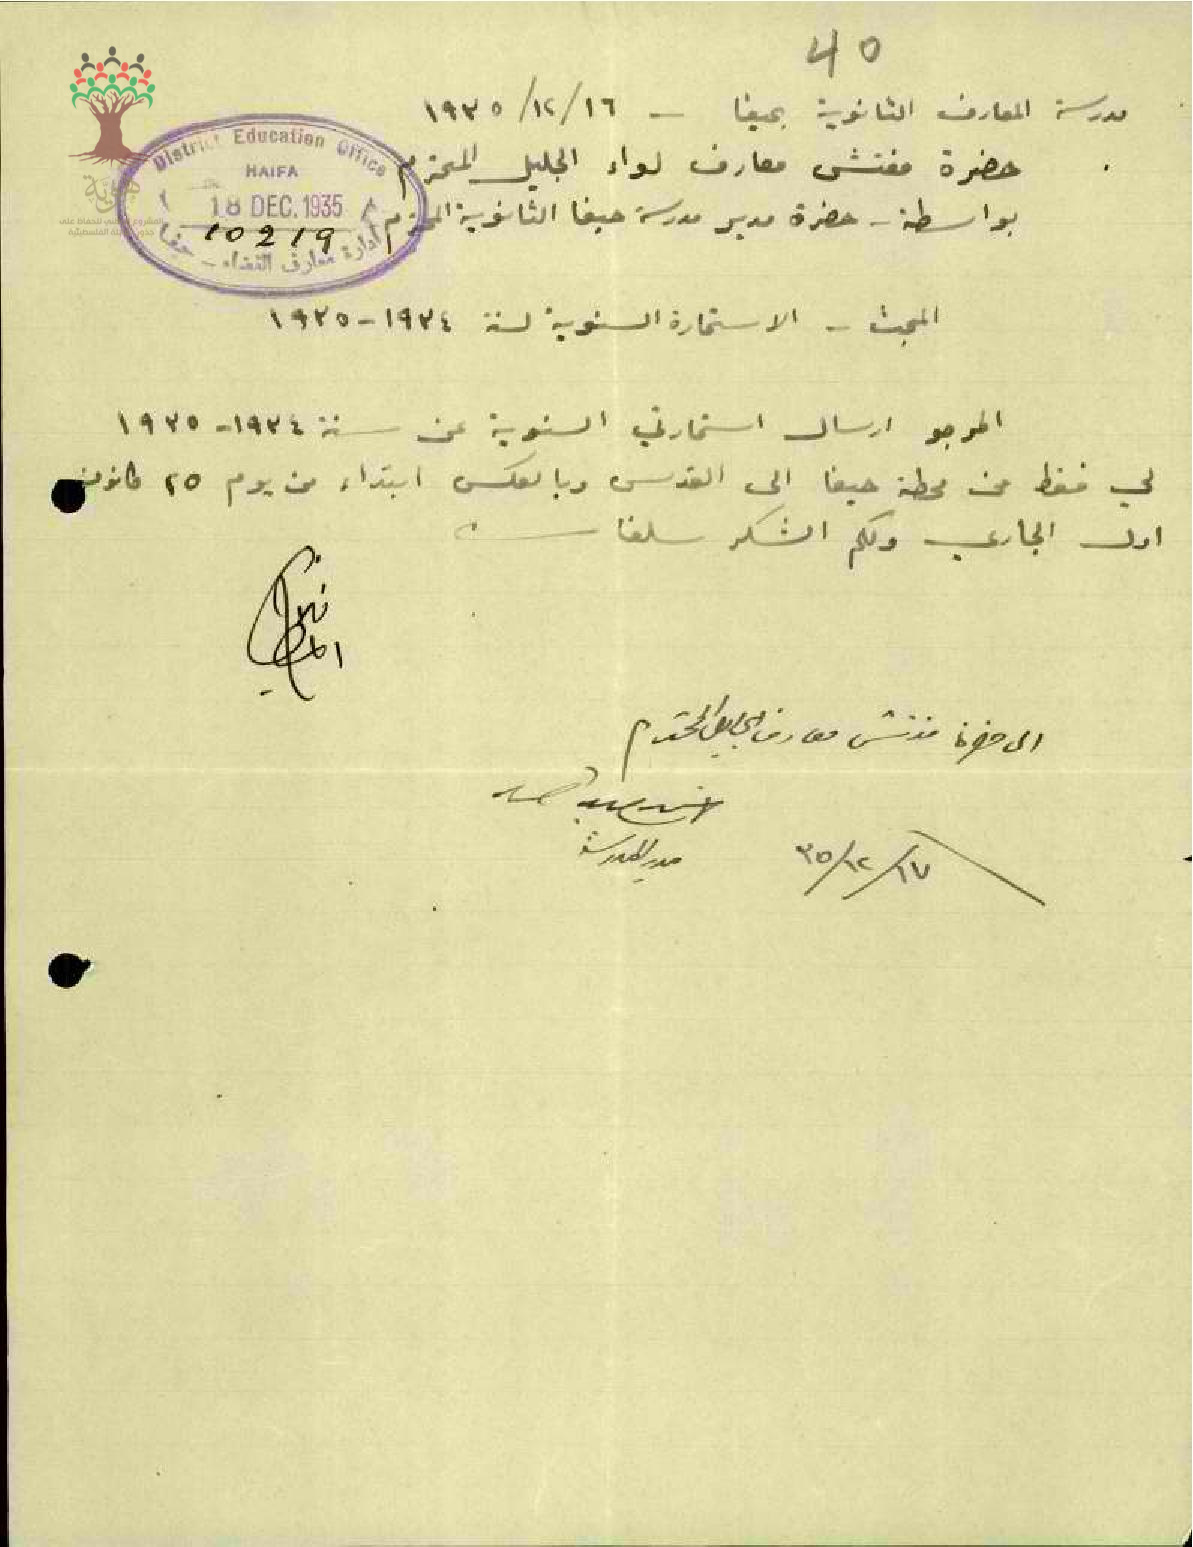 40
مدرسة المعارف الثانوية بحيفا - ١٦/١٢/١٩٣٥
حضرة مفتش معارف لواء الجليل المحترم
بواسطة - حضرة مدير مدرسة حيفا الثانوية المحترم
District Education Office
HAIFA
18 DEC. 1935
10219
ادارة معارف القضاء - حيفا
المبحث - الاستمارة السنوية لسنة ١٩٣٤-١٩٣٥
المرجو ارسال استمارتي السنوية عن سنة ١٩٣٤-١٩٣٥
لي فقط من محطة حيفا الى القدس وبالعكس ابتداء من يوم ٢٥ كانون
اول الجاري ولكم الشكر سلفا
الى حضرة مفتش معارف الجليل المحترم
مدير المدرسة
١٧/١٢/٣٥